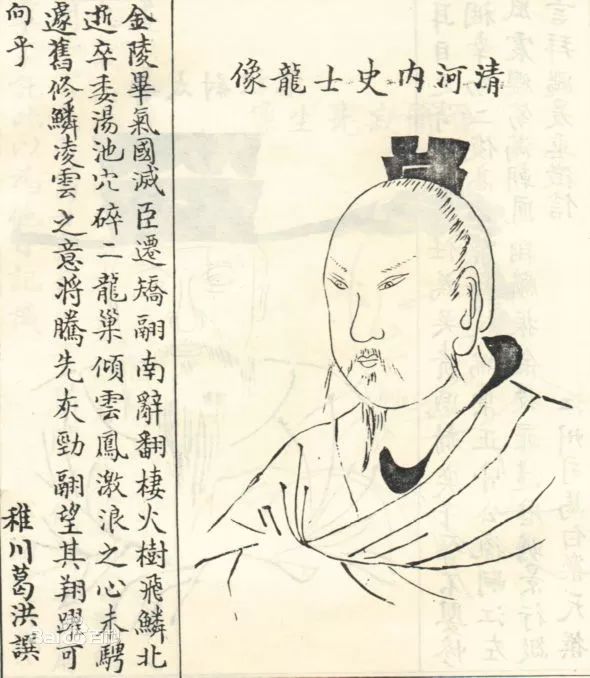 清河内史士龍像
金陵畢氣國滅臣遷矯翮南辭翻棲火樹飛鱗北
逝卒委湯池穴碎二龍巢傾雲鳳激浪之心未騁
遽舊修鱗凌雲之意將騰先灰勁翮望其翔躍可
向乎
稚川葛洪譔
Baidu百科